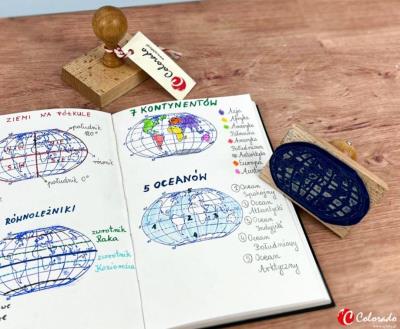 Colorado
ZIEMI NA PÓŁKULE
południk
180°
równik
południk 0°
RÓWNOLEŻNIKI
zwrotnik
Raka
zwrotnik
Koziorożca
7 KONTYNENTÓW
Azja
Afryka
Ameryka
Północna
Ameryka
Południowa
Antarktyda
Europa
5 OCEANÓW
5
1
2
3
4
1 Ocean
Spokojny
2 Ocean
Atlantycki
3 Ocean
Indyjski
4 Ocean
Południowy
5 Ocean
Arktyczny
Colorado